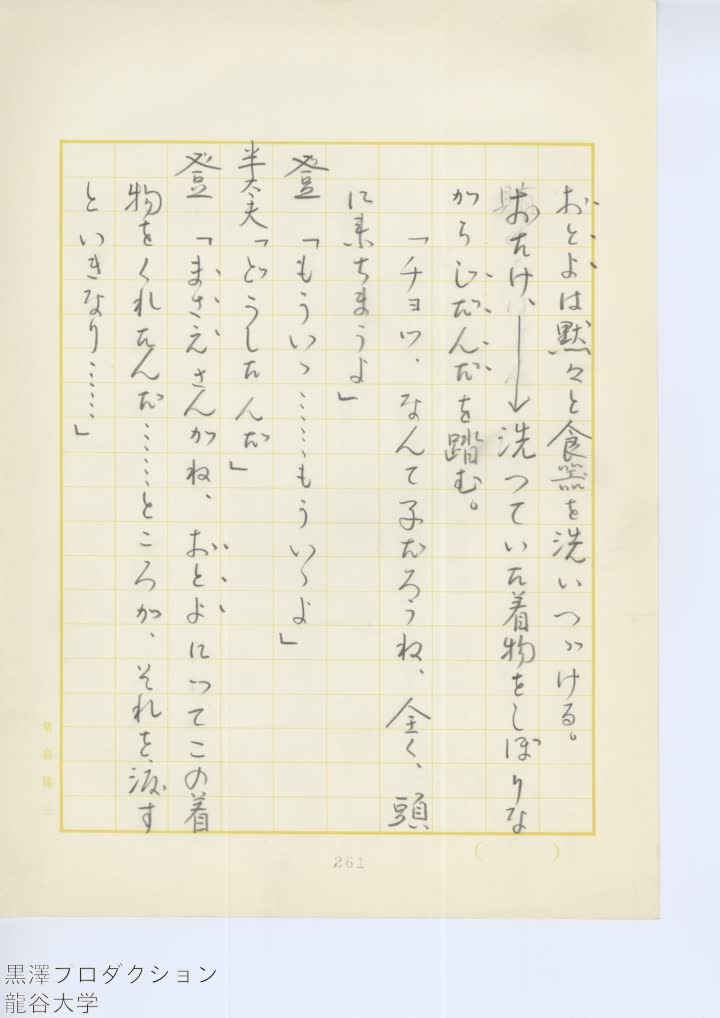 おとよは黙々と食器を洗いつゞける。
おたけ、洗つていた着物をしぼりな
がらじだんだを踏む。
「チョツ、なんて子だろうね、全く、頭
に来ちまうよ」
登「もういゝ……もういゝよ」
半太夫「どうしたんだ」
登「まさえさんがね、おとよにつてこの着
物をくれたんだ……ところが、それを渡す
といきなり……」
261
黒澤プロダクション
龍谷大学